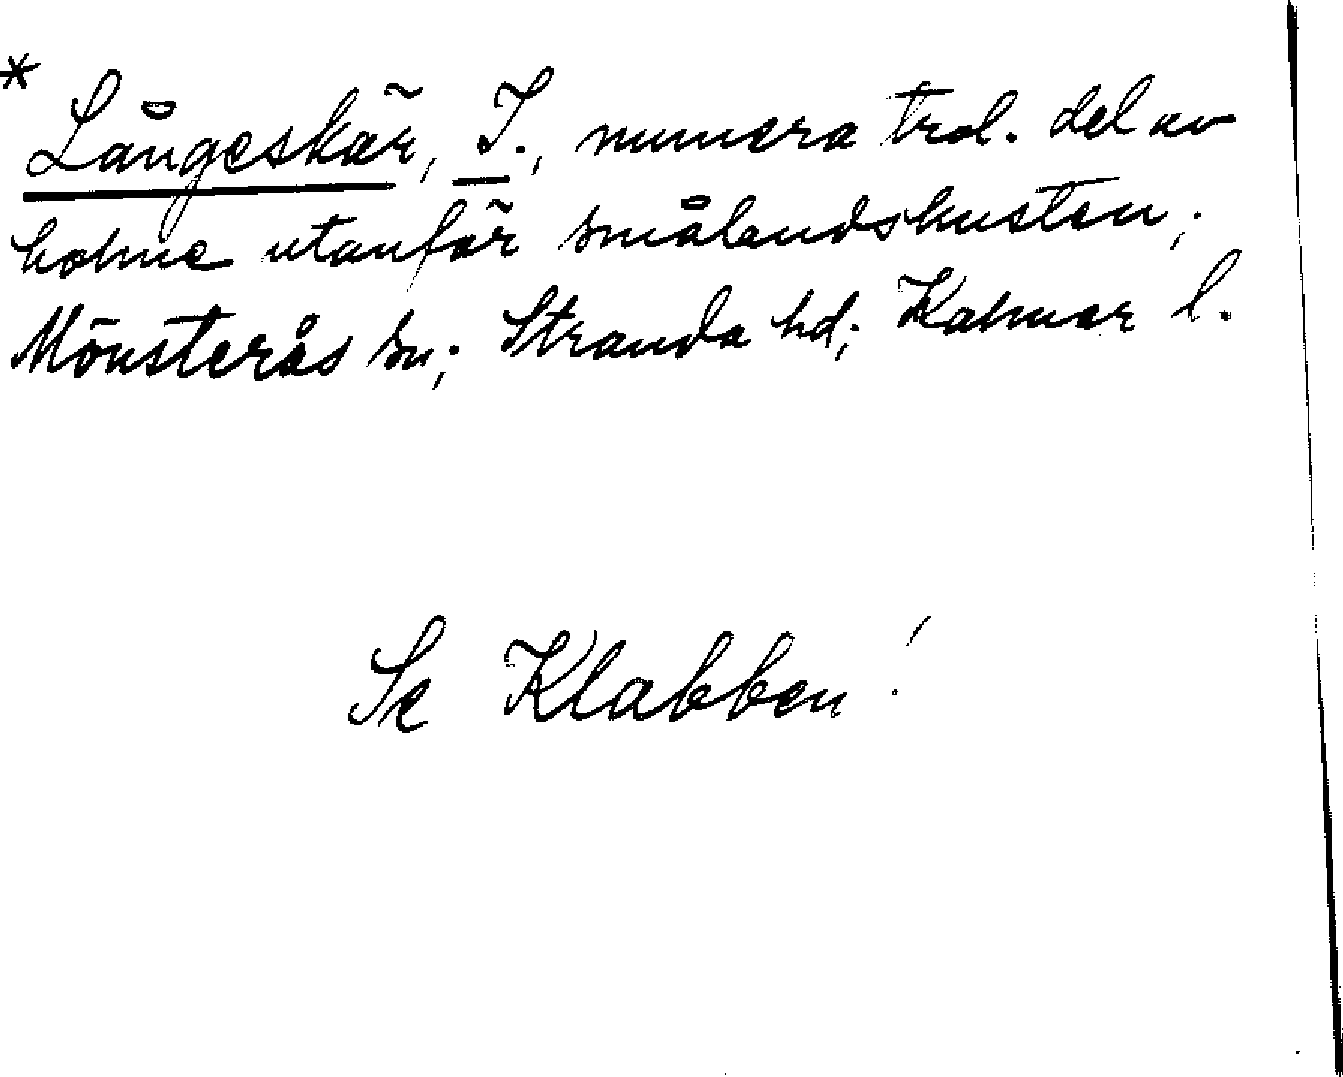 * Långeskär, I., numera trol. del av
holme utanför smålandskusten;
Mönsterås sn; Stranda hd; Kalmar l.
Se Klabben!